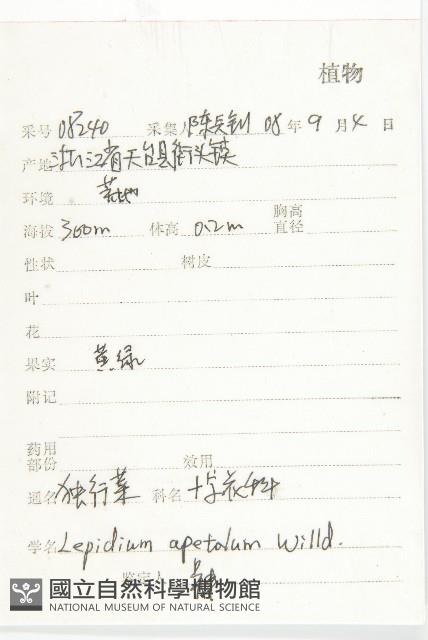 植物
采号 08240 采集人 陈兵 08 年 9 月 4 日
产地 浙江省天台县街头镇
环境 荒地
胸高
海拔 360m 体高 0.2m 直径
性状 树皮
叶
花
果实 黄绿
附记
药用
部份 效用
通名 独行菜 科名 十字花科
学名 Lepidium apetalum Willd.
鉴定人
國立自然科學博物館
NATIONAL MUSEUM OF NATURAL SCIENCE